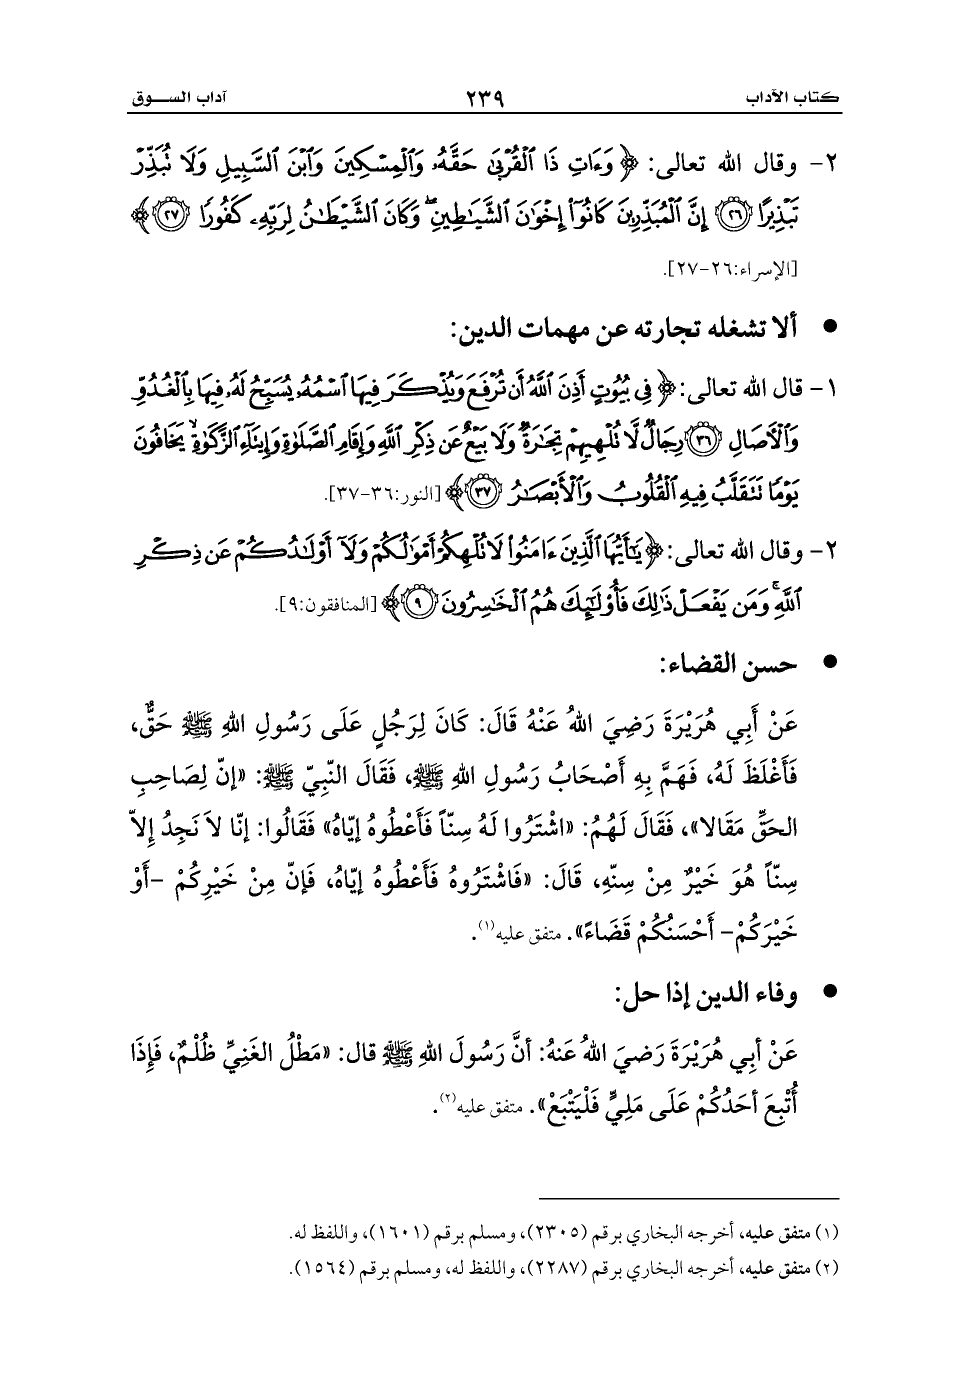 كتاب الآداب ٢٣٩ آداب الســوق
٢- وقال الله تعالى: ﴿ وَءَاتِ ذَا ٱلْقُرْبَىٰ حَقَّهُۥ وَٱلْمِسْكِينَ وَٱبْنَ ٱلسَّبِيلِ وَلَا تُبَذِّرْ
تَبْذِيرًا ۝٢٦ إِنَّ ٱلْمُبَذِّرِينَ كَانُوٓا۟ إِخْوَٰنَ ٱلشَّيَـٰطِينِ ۖ وَكَانَ ٱلشَّيْطَـٰنُ لِرَبِّهِۦ كَفُورًا ۝٢٧ ﴾
[الإسراء:٢٦-٢٧].
● ألا تشغله تجارته عن مهمات الدين:
١- قال الله تعالى: ﴿ فِى بُيُوتٍ أَذِنَ ٱللَّهُ أَن تُرْفَعَ وَيُذْكَرَ فِيهَا ٱسْمُهُۥ يُسَبِّحُ لَهُۥ فِيهَا بِٱلْغُدُوِّ
وَٱلْـَٔاصَالِ ۝٣٦ رِجَالٌ لَّا تُلْهِيهِمْ تِجَـٰرَةٌ وَلَا بَيْعٌ عَن ذِكْرِ ٱللَّهِ وَإِقَامِ ٱلصَّلَوٰةِ وَإِيتَآءِ ٱلزَّكَوٰةِ ۙ يَخَافُونَ
يَوْمًا تَتَقَلَّبُ فِيهِ ٱلْقُلُوبُ وَٱلْأَبْصَـٰرُ ۝٣٧ ﴾ [النور:٣٦-٣٧].
٢- وقال الله تعالى: ﴿ يَـٰٓأَيُّهَا ٱلَّذِينَ ءَامَنُوا۟ لَا تُلْهِكُمْ أَمْوَٰلُكُمْ وَلَآ أَوْلَـٰدُكُمْ عَن ذِكْرِ
ٱللَّهِ ۚ وَمَن يَفْعَلْ ذَٰلِكَ فَأُو۟لَـٰٓئِكَ هُمُ ٱلْخَـٰسِرُونَ ۝٩ ﴾ [المنافقون:٩].
● حسن القضاء:
عَنْ أَبِي هُرَيْرَةَ رَضِيَ اللهُ عَنْهُ قَالَ: كَانَ لِرَجُلٍ عَلَى رَسُولِ اللهِ ﷺ حَقٌّ،
فَأَغْلَظَ لَهُ، فَهَمَّ بِهِ أَصْحَابُ رَسُولِ اللهِ ﷺ، فَقَالَ النَّبِيّ ﷺ: «إنّ لِصَاحِبِ
الحَقِّ مَقَالا»، فَقَالَ لَهُمُ: «اشْتَرُوا لَهُ سِنّاً فَأَعْطُوهُ إيّاهُ» فَقَالُوا: إنّا لاَ نَجِدُ إلاّ
سِنّاً هُوَ خَيْرٌ مِنْ سِنِّهِ، قَالَ: «فَاشْتَرُوهُ فَأَعْطُوهُ إيّاهُ، فَإنّ مِنْ خَيْرِكُمْ -أَوْ
خَيْرَكُمْ- أَحْسَنُكُمْ قَضَاءً». متفق عليه(١).
● وفاء الدين إذا حل:
عَنْ أبِي هُرَيْرَةَ رَضيَ اللهُ عَنهُ: أنَّ رَسُولَ اللهِ ﷺ قال: «مَطْلُ الغَنِيِّ ظُلْمٌ، فَإِذَا
أُتْبِعَ أحَدُكُمْ عَلَى مَلِيٍّ فَلْيَتْبَعْ». متفق عليه(٢).
(١) متفق عليه، أخرجه البخاري برقم (٢٣٠٥)، ومسلم برقم (١٦٠١)، واللفظ له.
(٢) متفق عليه، أخرجه البخاري برقم (٢٢٨٧)، واللفظ له، ومسلم برقم (١٥٦٤).